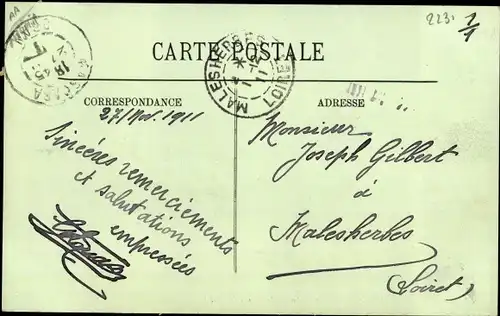 223.
1/1
CARTE POSTALE
MALESHERBES
LOIRET
18 45
CORRESPONDANCE
ADRESSE
27 Nov. 1911
Sincères remerciements
et salutations
empressées
Monsieur
Joseph Gilbert
à
Malesherbes
(Loiret)